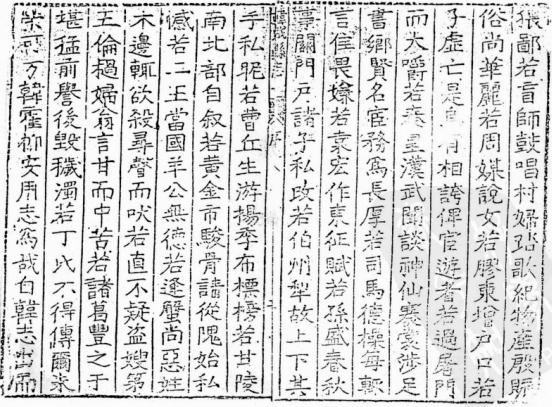 猥鄙若盲師鼓唱村婦巫歌紀物產殷賑
俗尚華麗若周媒說女若膠東增戶口若
子虛亡是烏有相誇俾宦遊者若過屠門
而大嚼若秦皇漢武聞談神仙褰裳涉足
書鄉賢名宦務爲長厚若司馬德操每輒
言佳畏嫌若袁宏作東征賦若孫盛春秋
事關門戶諸子私改若伯州犁故上下其
手私昵若曹丘生游揚季布標榜若甘陵
南北部自叙若黃金市駿骨請從隗始私
憾若二王當國羊公無德若逢嬖尚惡姓
木邊輒欲殺尋聲而吠若直不疑盜嫂第
五倫撾婦翁言甘而中苦若諸葛豐之于
堪猛前譽後毀穢濁若丁氏不得傳爾朱
榮可方韓霍抑安用志爲哉自韓志出而